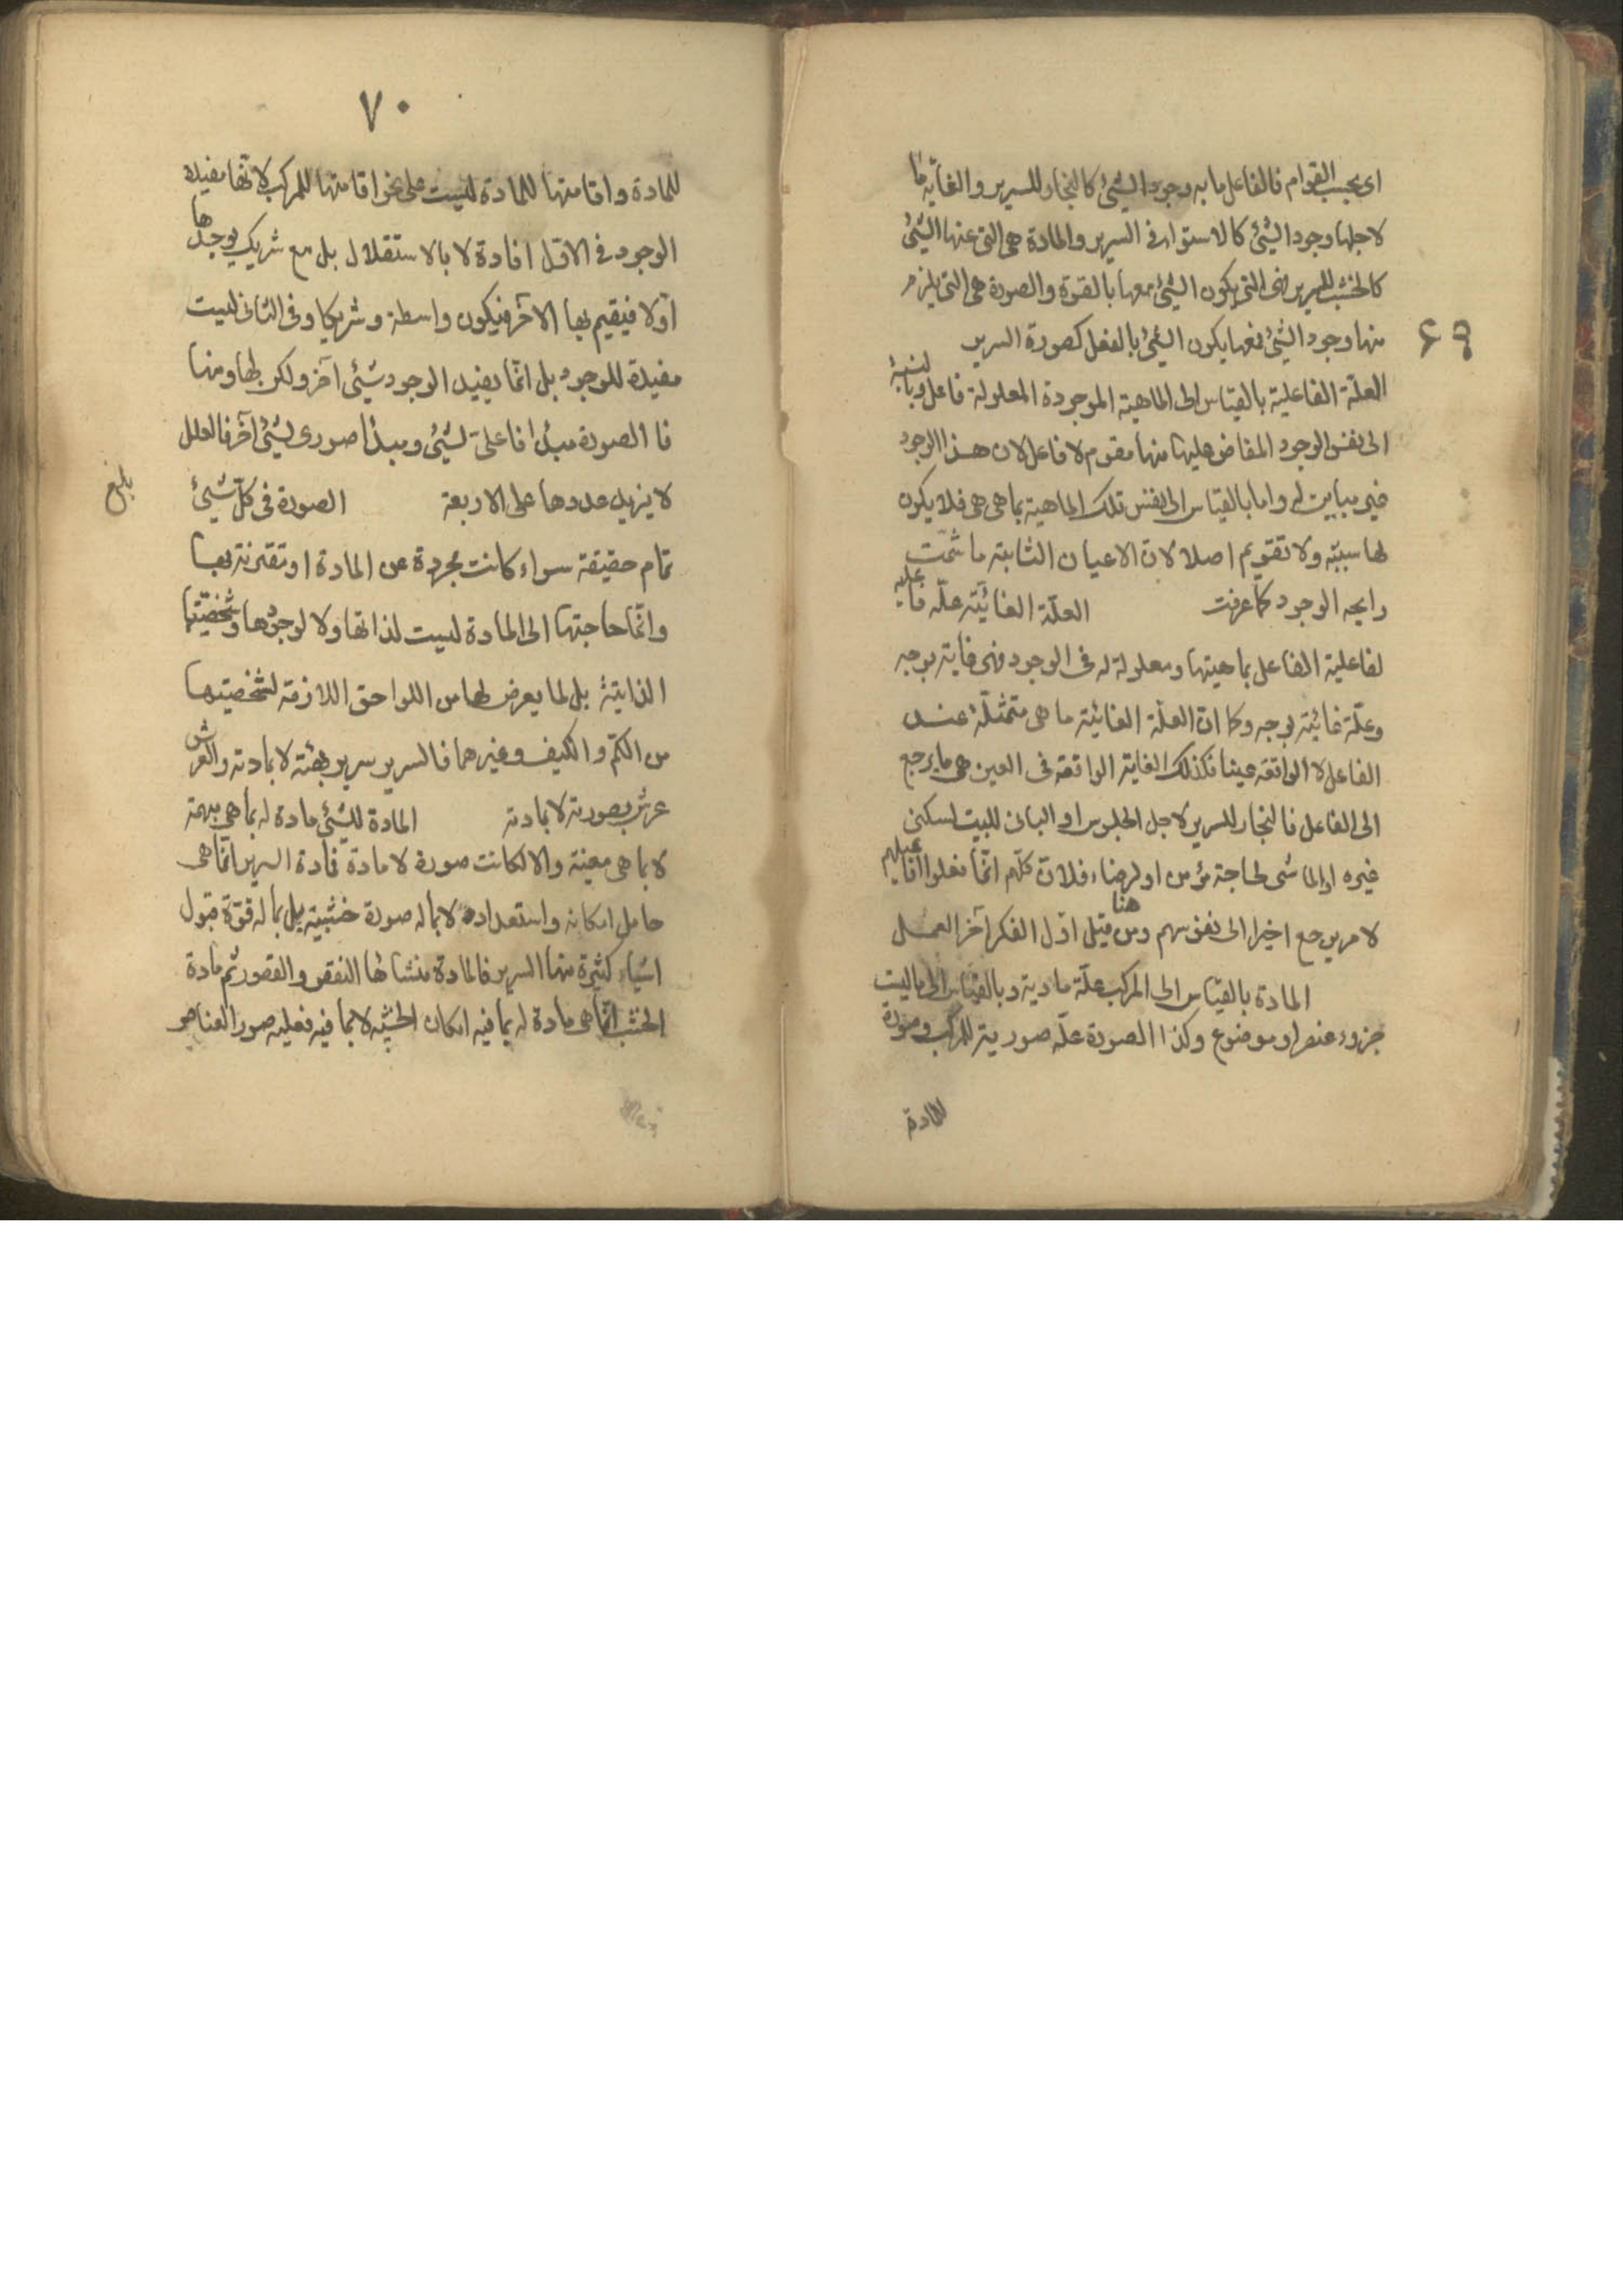 اى بحسب القوام فالفاعل ما به وجود الشئ كالنجار للسرير والغايه ما
لاجلها وجود الشئ كالاستواء فى السرير والمادة هى التى عنها الشئ
كالخشب للسرير فهى التى يكون الشئ معها بالقوة والصورة هى التى يلزم
منها وجود الشئ فمعها يكون الشئ بالفعل كصورة السرير
العلّة الفاعلية بالقياس الى الماهية الموجودة المعلولة فاعل وبالنسبة
الى نفس الوجود المفاض عليها منها مقوم لا فاعل لان هذا الوجود
غير مباين له واما بالقياس الى نفس تلك الماهية بما هى هى فلا يكون
لها سببيّه ولا تقويم اصلا لانّ الاعيان الثابتة ما شمّت
رايحه الوجود كما عرفت العلّة الغائيّة علّه فاعليه
لفاعلية الفاعل بماهيتها ومعلولة له فى الوجود فهى غاية بوجه
وعلّة غائيّة بوجه وكما انّ العلّة الغائيّة ما هى متمثلّة عند
الفاعل لا الواقعه عينا فكذلك الغاية الواقعه فى العين هى ما يرجع
الى الفاعل فالنجار للسرير لاجل الجلوس او البانى للبيت لسكنى
غيره او الماشى لحاجة مؤمن او لرضاء فلان كلّهم انّما فعلوا افاعيلهم
لامر يرجع اخيرا الى نفوسهم ومن هنا قيل اوّل الفكر آخر العمل
المادة بالقياس الى المركب علّة مادية وبالقياس الى ما ليست
جزوءه عنصر او موضوع وكذا الصورة علّه صورية للمركب وصورة
للمادة
٧٠
للمادة واقامتها للمادة ليست على نحو اقامتها للمركب لانّها مفيدة
الوجود فى الاوّل افادة لا بالاستقلال بل مع شريك يوجدها
اوّلا فيقيم بها الآخر فيكون واسطة وشريكا وفى الثانى ليست
مفيدة للوجود بل انّما يفيد الوجود شئى آخر ولكن بها ومنها
فالصورة مبدأ فاعلىّ لشئ ومبدأ صورى لشئ آخر فالعلل
لا يزيل عددها على الاربعة الصورة فى كلّ شئ
تمام حقيقة سواء كانت مجردة عن المادة او مقترنة بها
وانّما حاجتها الى المادة ليست لذاتها ولا لوجودها وشخصيّتها
الذاتيّة بل لما يعرض لها من اللواحق اللازمة لشخصيتها
من الكمّ والكيف وغيرهما فالسرير سرير بهيئته لا بمادته والعرش
عرش بصورته لا بمادته المادة للشئ مادة له بما هى مبهمة
لا بما هى معينة والا لكانت صورة لا مادة فمادة السرير انّما هى
حامل امكانه واستعداده لا بما له صورة خشبية بل بما له قوّة قبول
اشياء كثيرة منها السرير فالمادة منشأها النقص والقصور ثم مادة
الخشب انّما هى مادة له بما فيه امكان الخشبيه لا بما فيه فعليه صور العناصر
بلغ